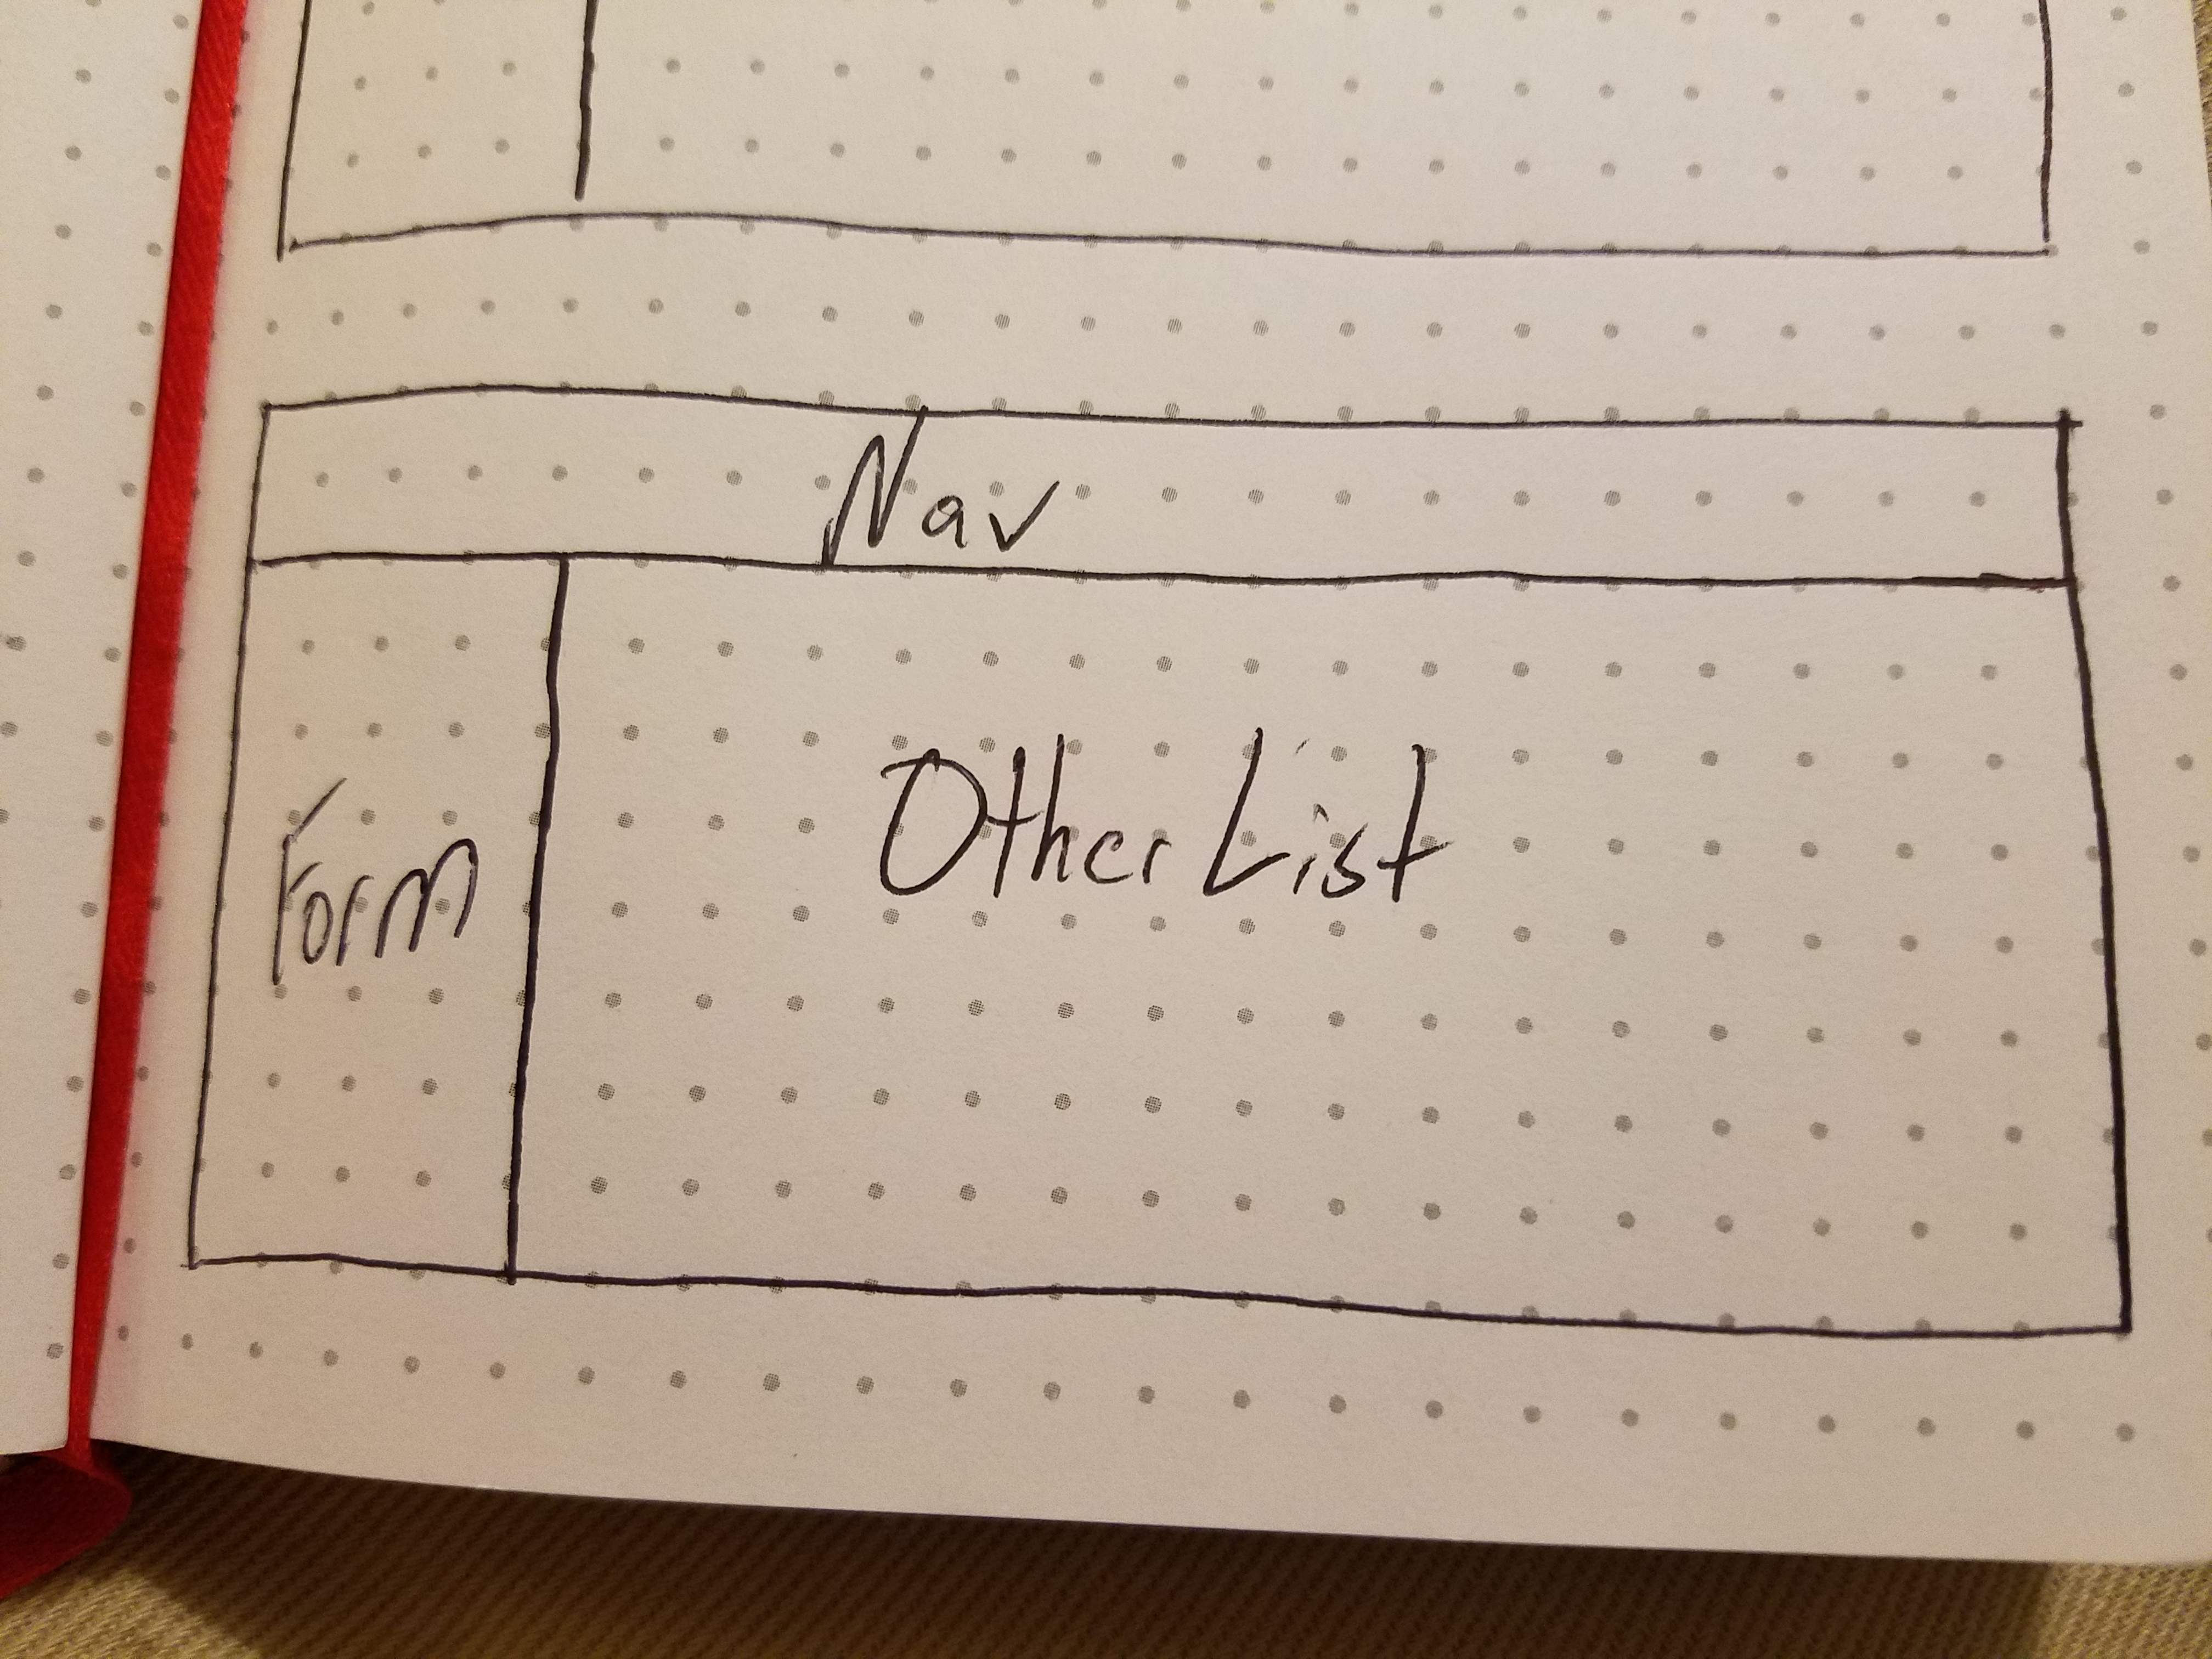 Nav
Form
Other List